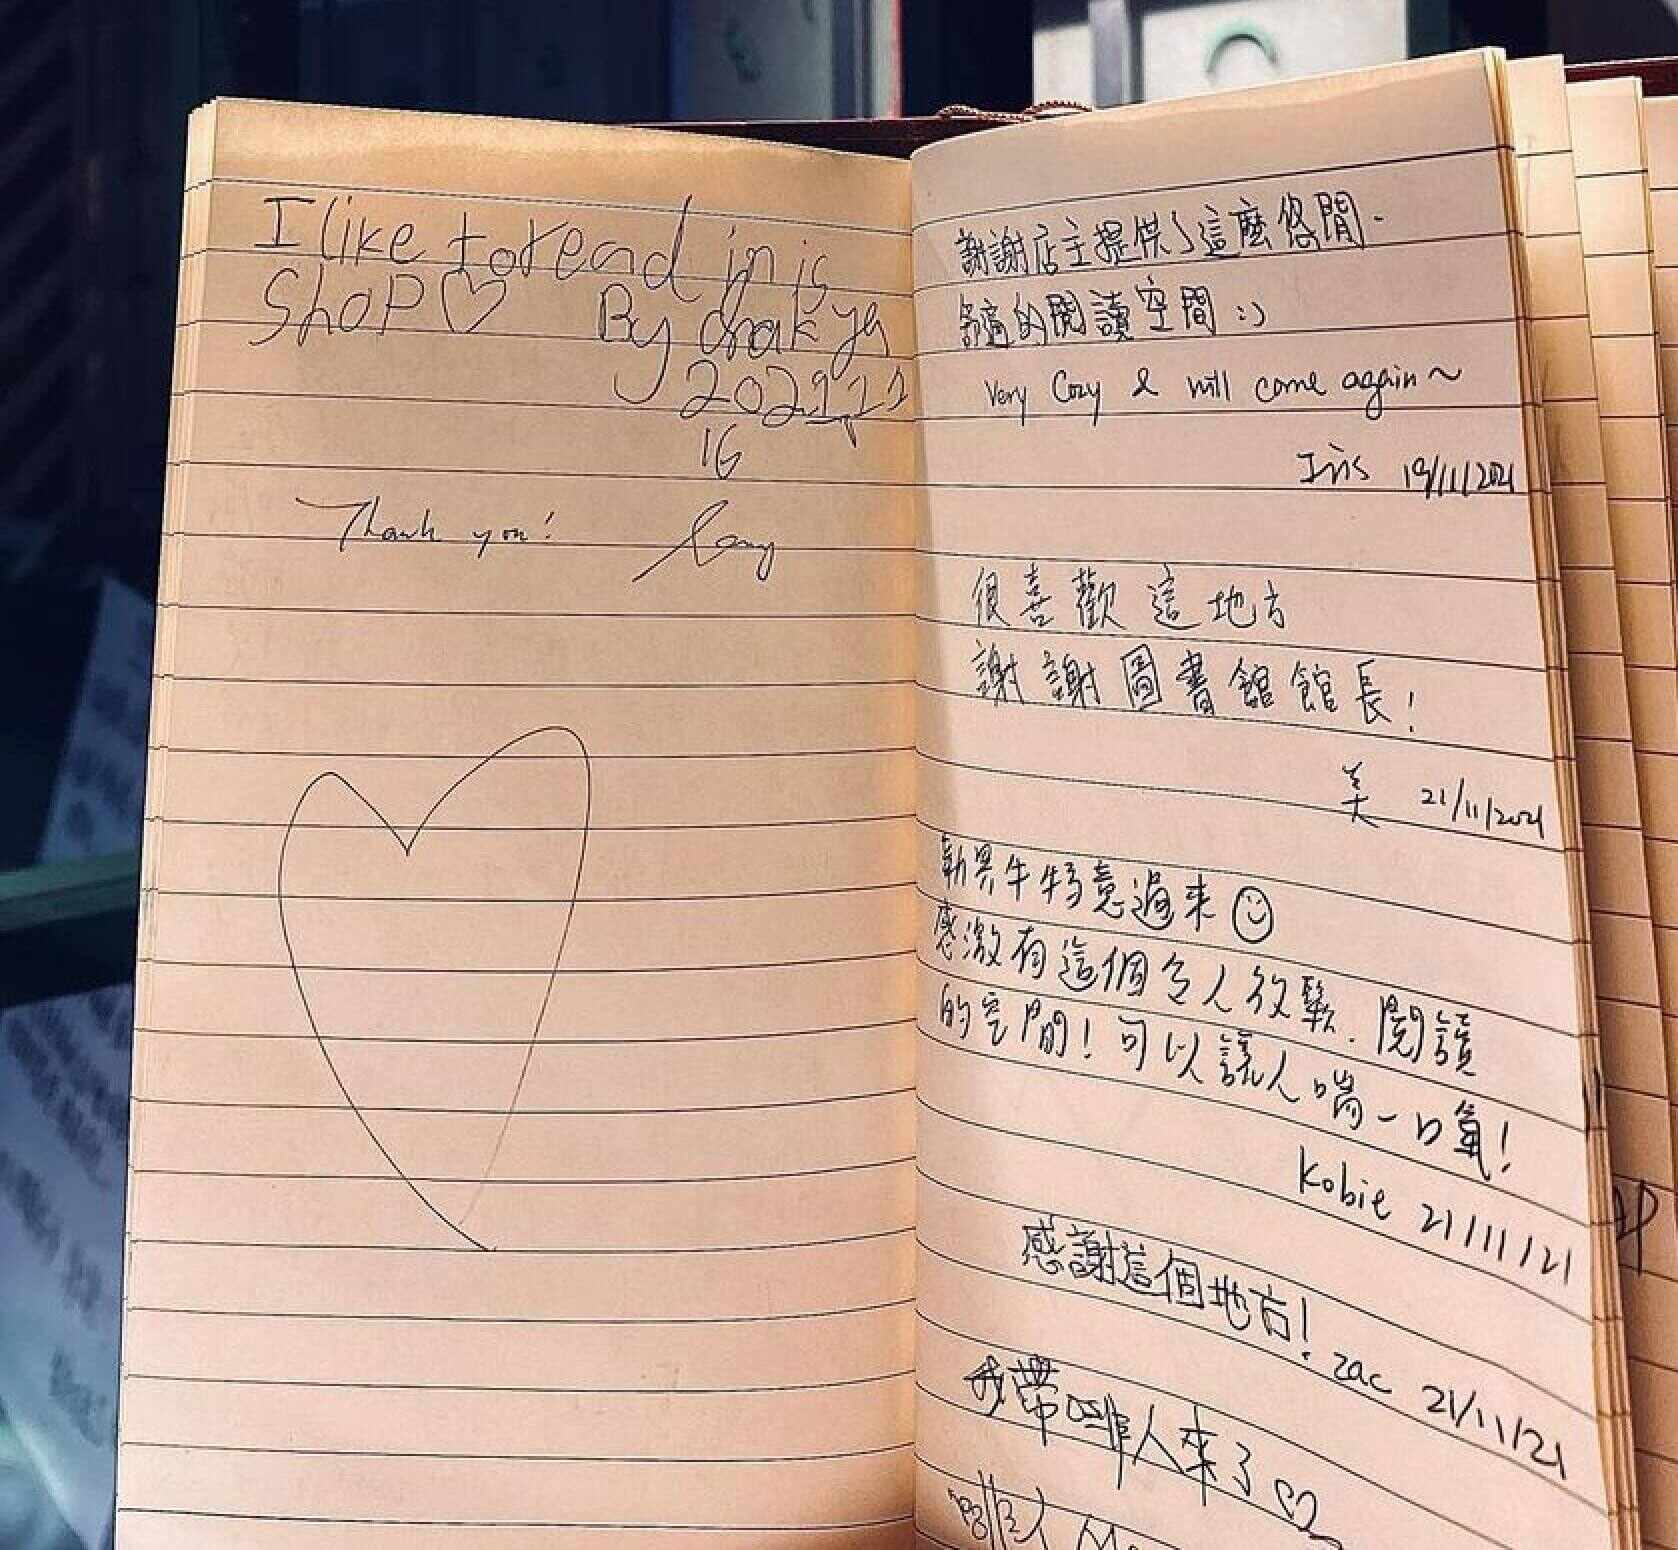 I like to read in is
Shop ♡ By
16
Thank you!
謝謝店主提供了這麼悠閒、
舒適的閱讀空間 :)
Very Cozy & will come again~
Iris 19/11/2021
很喜歡這地方
謝謝圖書館館長!
美 21/11/2021
特意過來
感激有這個令人放鬆、閱讀
的空間!可以讓人喘一口氣!
Kobie 21/11/21
感謝這個地方!
zac 21/11/21
我帶啡人來了♡
啡人